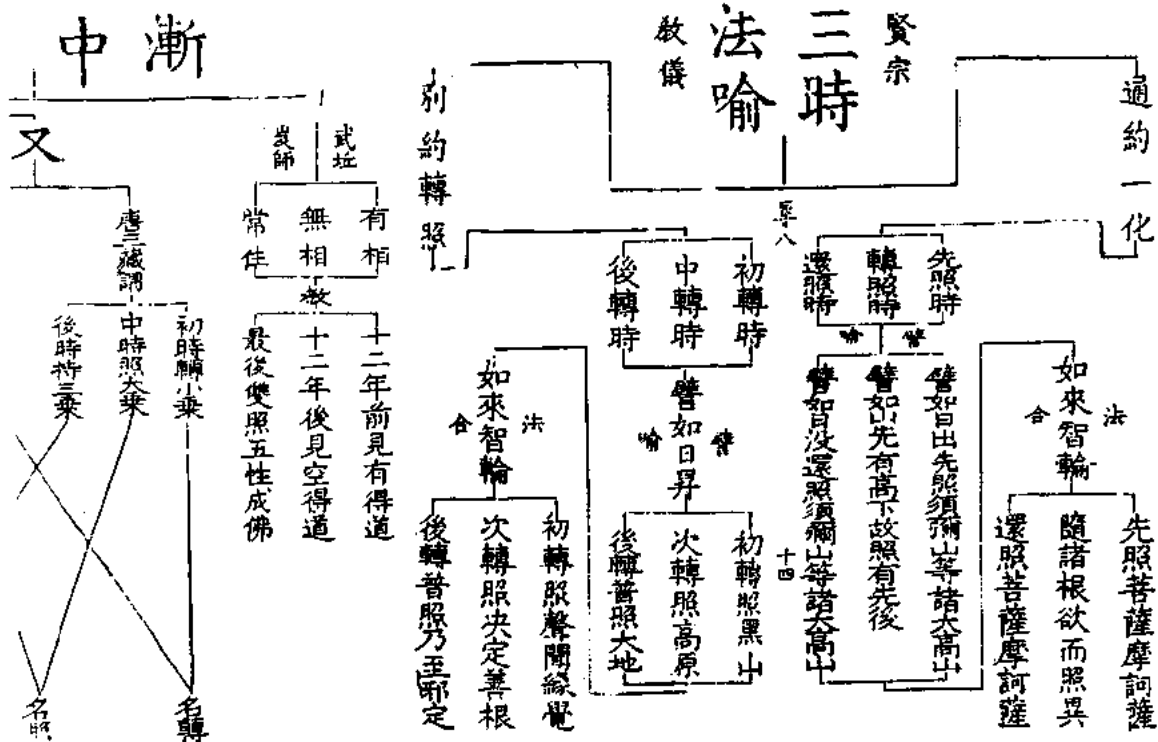 賢宗
三時
法喻
教儀
通約一化
先照時
轉照時
還照時
譬
喻
譬如日出先照須彌山等諸大高山
譬如出先有高下故照有先後
譬如日没還照須彌山等諸大高山
如來智輪
法
合
先照菩薩摩訶薩
隨諸根欲而照異
還照菩薩摩訶薩
十四
別約轉照
初轉時
中轉時
後轉時
譬如日昇
譬
喻
初轉照黑山
次轉照高原
後轉普照大地
如來智輪
法
合
初轉照聲聞緣覺
次轉照決定善根
後轉普照乃至邪定
漸中
武丘
岌師
有相
無相
常住
教
十二年前見有得道
十二年後見空得道
最後雙照五性成佛
又
唐三藏謂
初時轉小乘
中時照大乘
後時持三乘
名轉
名照